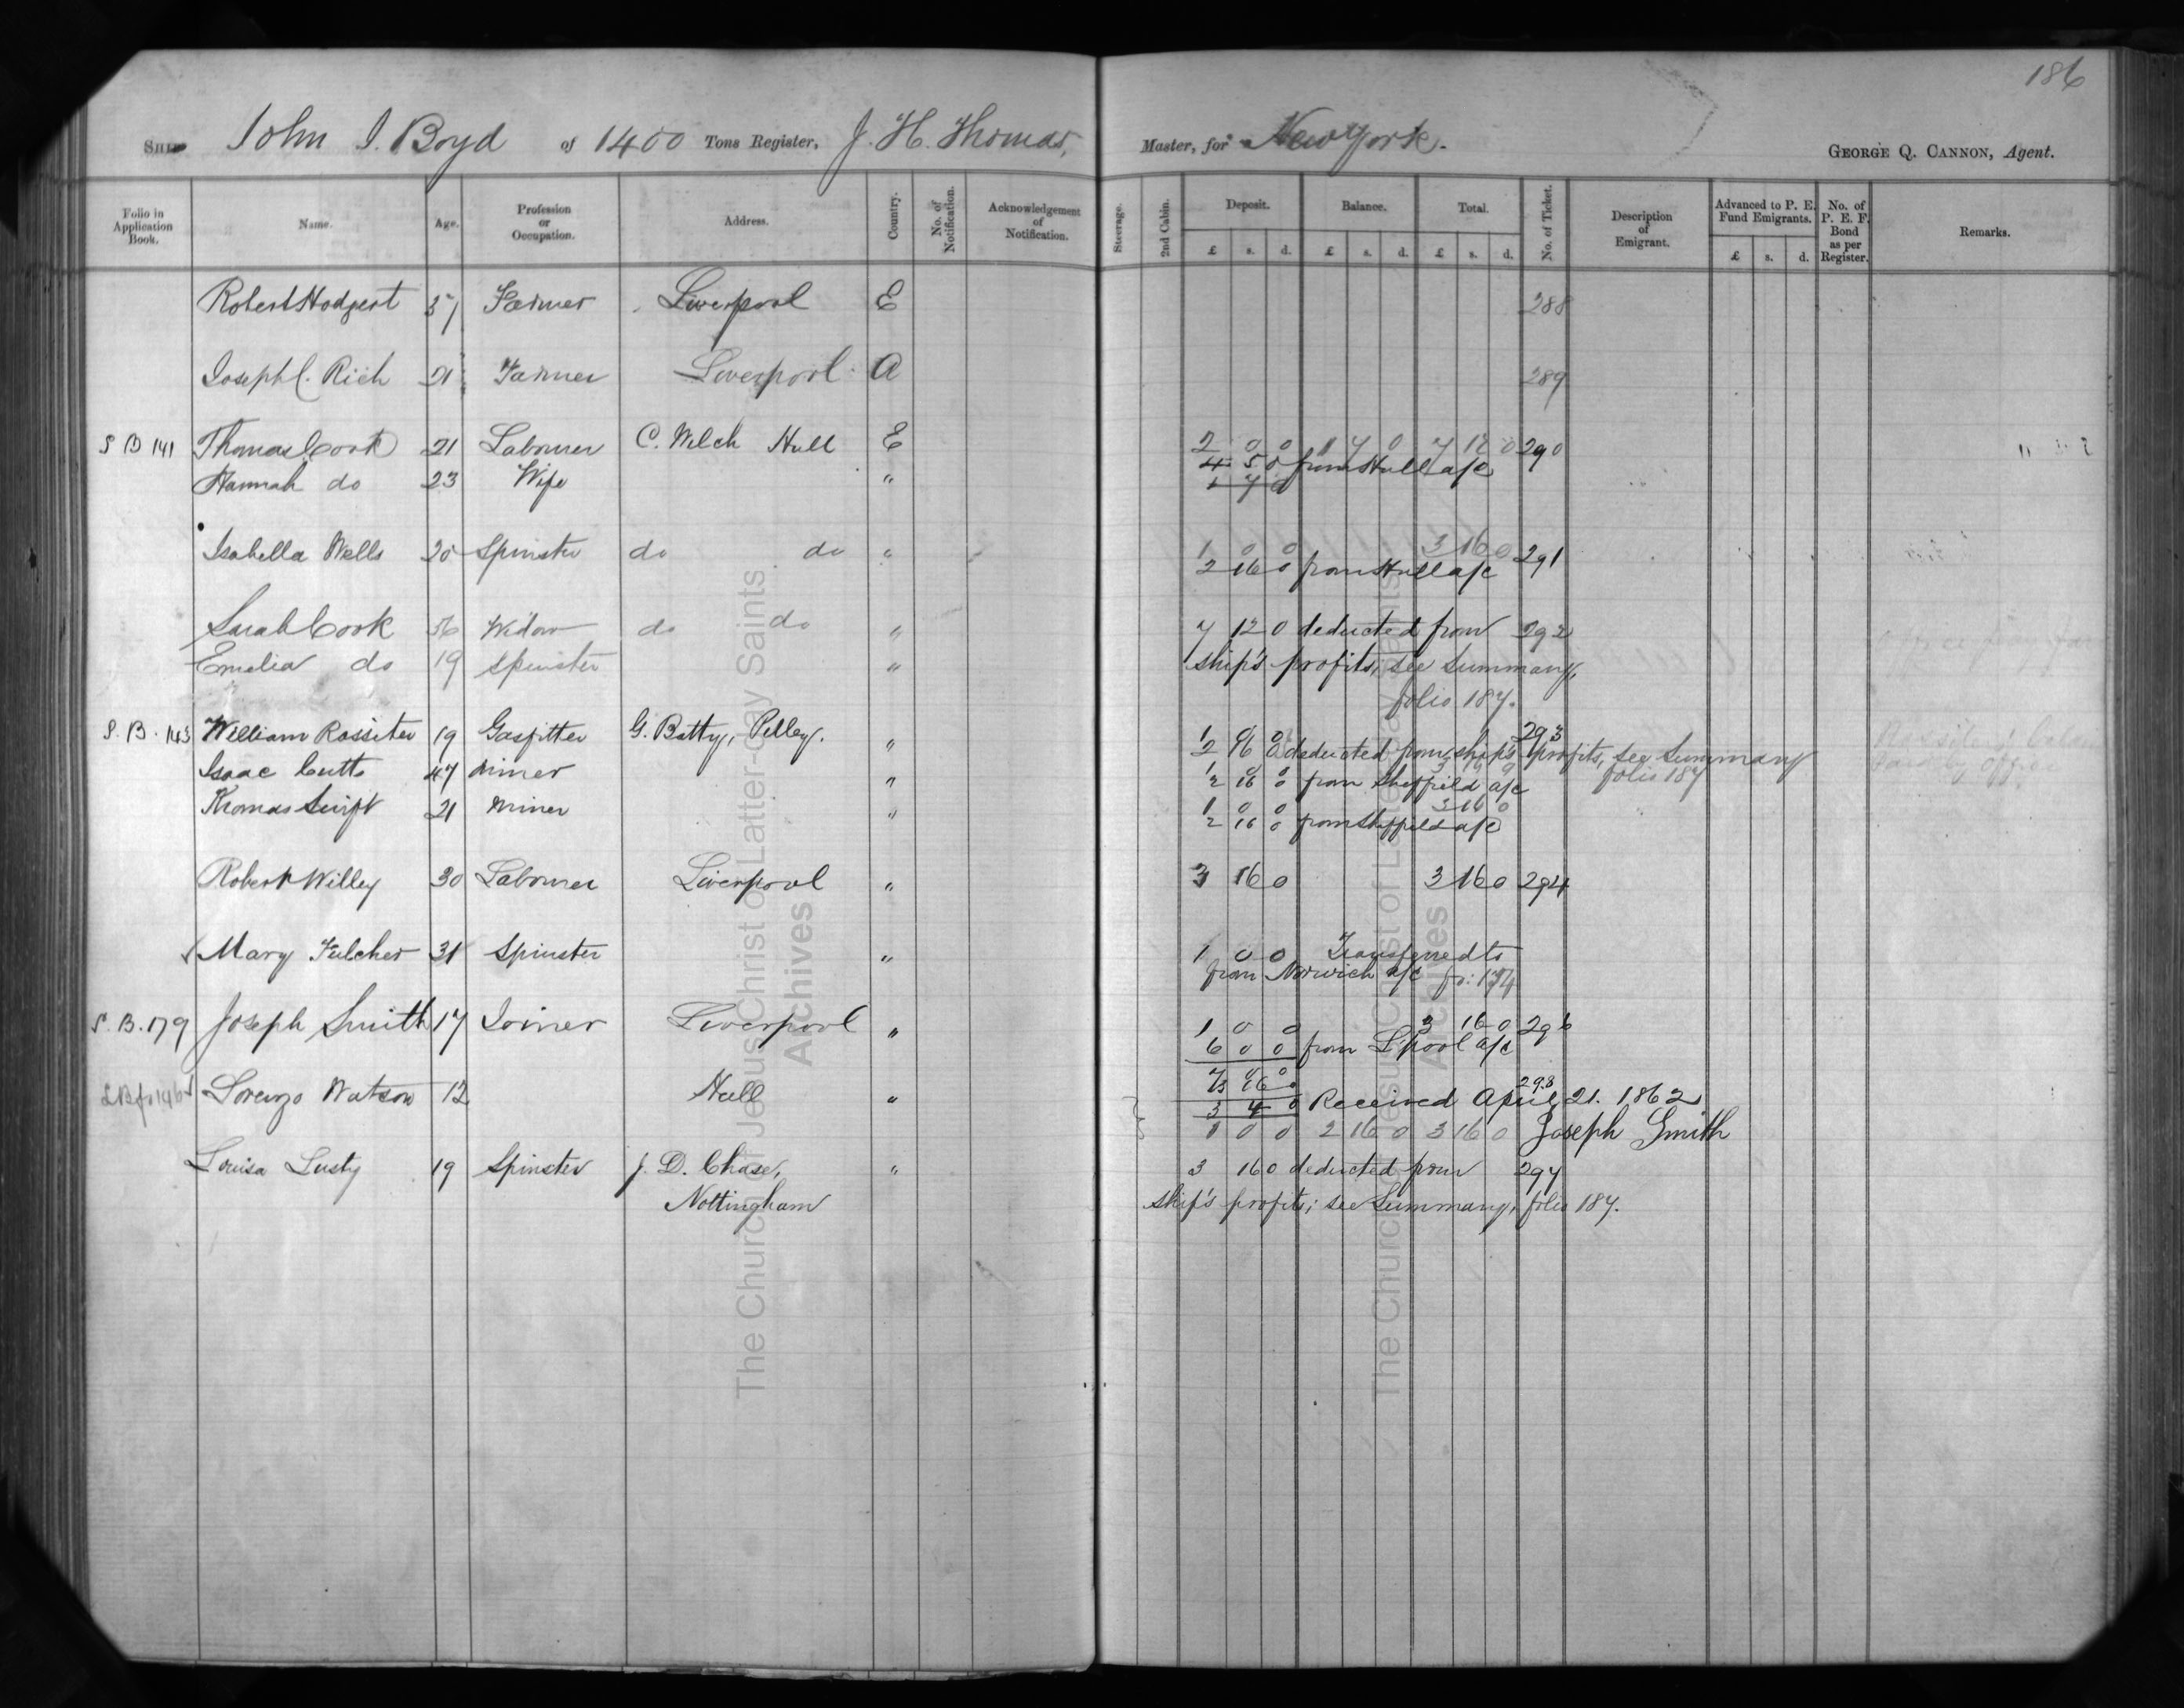 186
Ship John J. Boyd of 1400 Tons Register, J. H. Thomas, Master, for New York.
George Q. Cannon, Agent.
Folio in Application Book. Name. Age. Profession or Occupation. Address. Country. No. of Notification. Acknowledgement of Notification. Steerage. 2nd Cabin. Deposit. Balance. Total. No. of Ticket. Description of Emigrant. Advanced to P. E. Fund Emigrants. No. of P. E. F. Bond as per Register. Remarks.
£ s. d. £ s. d. £ s. d. £ s. d.
Robert Hodgert 37 Farmer Liverpool E 288
Joseph C. Rich 21 Farmer Liverpool A 289
S B 141 Thomas Cook 21 Labourer C. Welch Hull E 2 0 0 1 7 0 7 12 0 290
4 5 0 from Hull a/c
Hannah do 23 Wife " 1 7 0
Isabella Wells 20 Spinster do do " 1 0 0 3 16 0 291
2 16 0 from Hull a/c
Sarah Cook 56 Widow do do " 7 12 0 deducted from 292
Emelia do 19 Spinster " ship's profits; see Summary,
folio 187.
S. B. 143 William Rossiter 19 Gasfitter G. Batty, Pilley. " 1 0 0 293
2 16 0 deducted from ship's profits, see Summary
folio 187
Isaac Cutts 47 Miner " 1 0 0
2 16 0 from Sheffield a/c
Thomas Swift 21 Miner " 1 0 0 3 16 0
2 16 0 from Sheffield a/c
Robert Willey 30 Labourer Liverpool " 3 16 0 3 16 0 294
Mary Fulcher 31 Spinster " 1 0 0 Transferred to
from Norwich a/c fo: 174
S. B. 179 Joseph Smith 17 Joiner Liverpool " 1 0 0 3 16 0 296
6 0 0 from L'pool a/c
7 0 0
3 16 0 298
Lorenzo Watson 12 Hull " 3 4 0 Received April 21. 1862
1 0 0 2 16 0 3 16 0 Joseph Smith
Louisa Lusty 19 Spinster J. D. Chase, " 3 16 0 deducted from 297
Nottingham ship's profits; see Summary, folio 187.
The Church of Jesus Christ of Latter-day Saints
Archives
The Church of Jesus Christ of Latter-day Saints
Archives